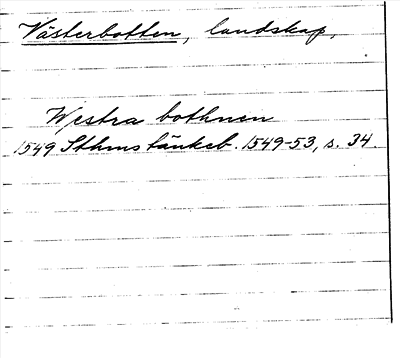 Västerbotten, landskap,
Westra bothnen
1549 Sthms tänkeb. 1549-53, s. 34